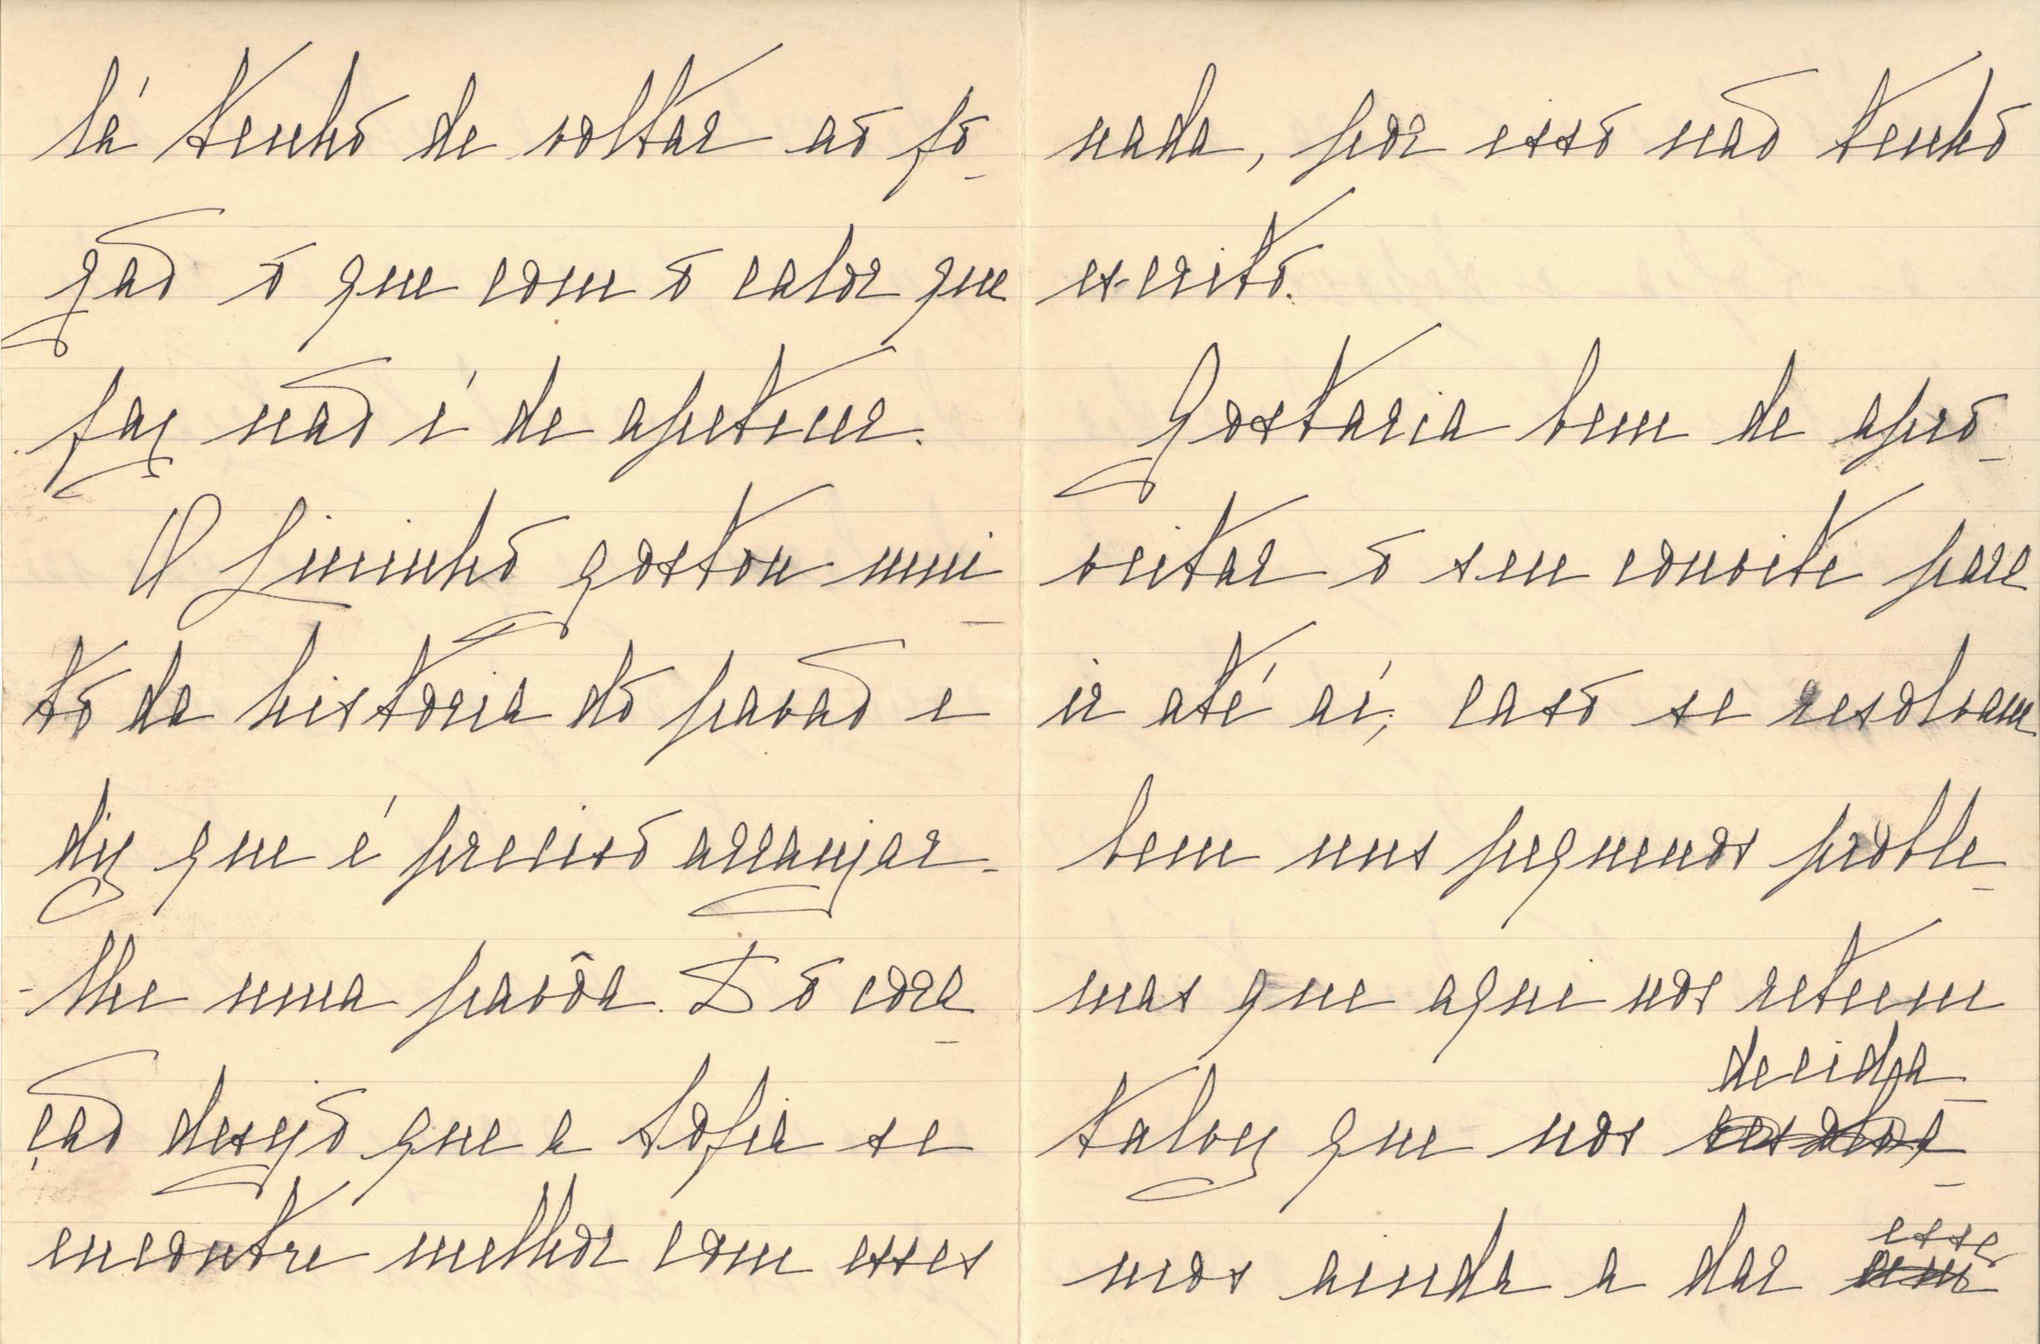 lá tenho de voltar ao fo-
gão o que com o calor que
faz não é de apetecer.
O Lininho gostou mui-
to da historia do pavão e
diz que é preciso arranjar-
-lhe uma pavôa. Do cora-
ção desejo que a Sofia se
encontre melhor com esses
nada, por isso não tenho
escrito.
Gostaria bem de apro-
veitar o seu convite para
ir até aí, caso se resolvam
bem uns pequenos proble-
mas que aqui nos reteem
decida-
talvez que nos resolva-
esse
mos ainda a dar